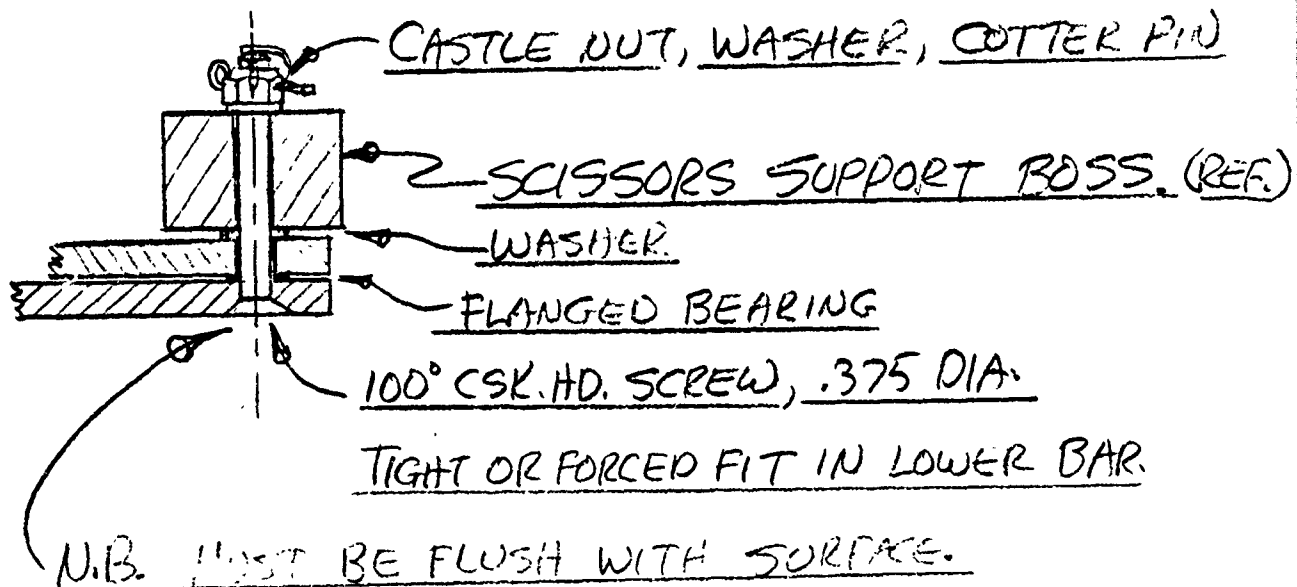 CASTLE NUT, WASHER, COTTER PIN
SCISSORS SUPPORT BOSS. (REF.)
WASHER.
FLANGED BEARING
100° CSK. HD. SCREW, .375 DIA.
TIGHT OR FORCED FIT IN LOWER BAR.
N.B. MUST BE FLUSH WITH SURFACE.